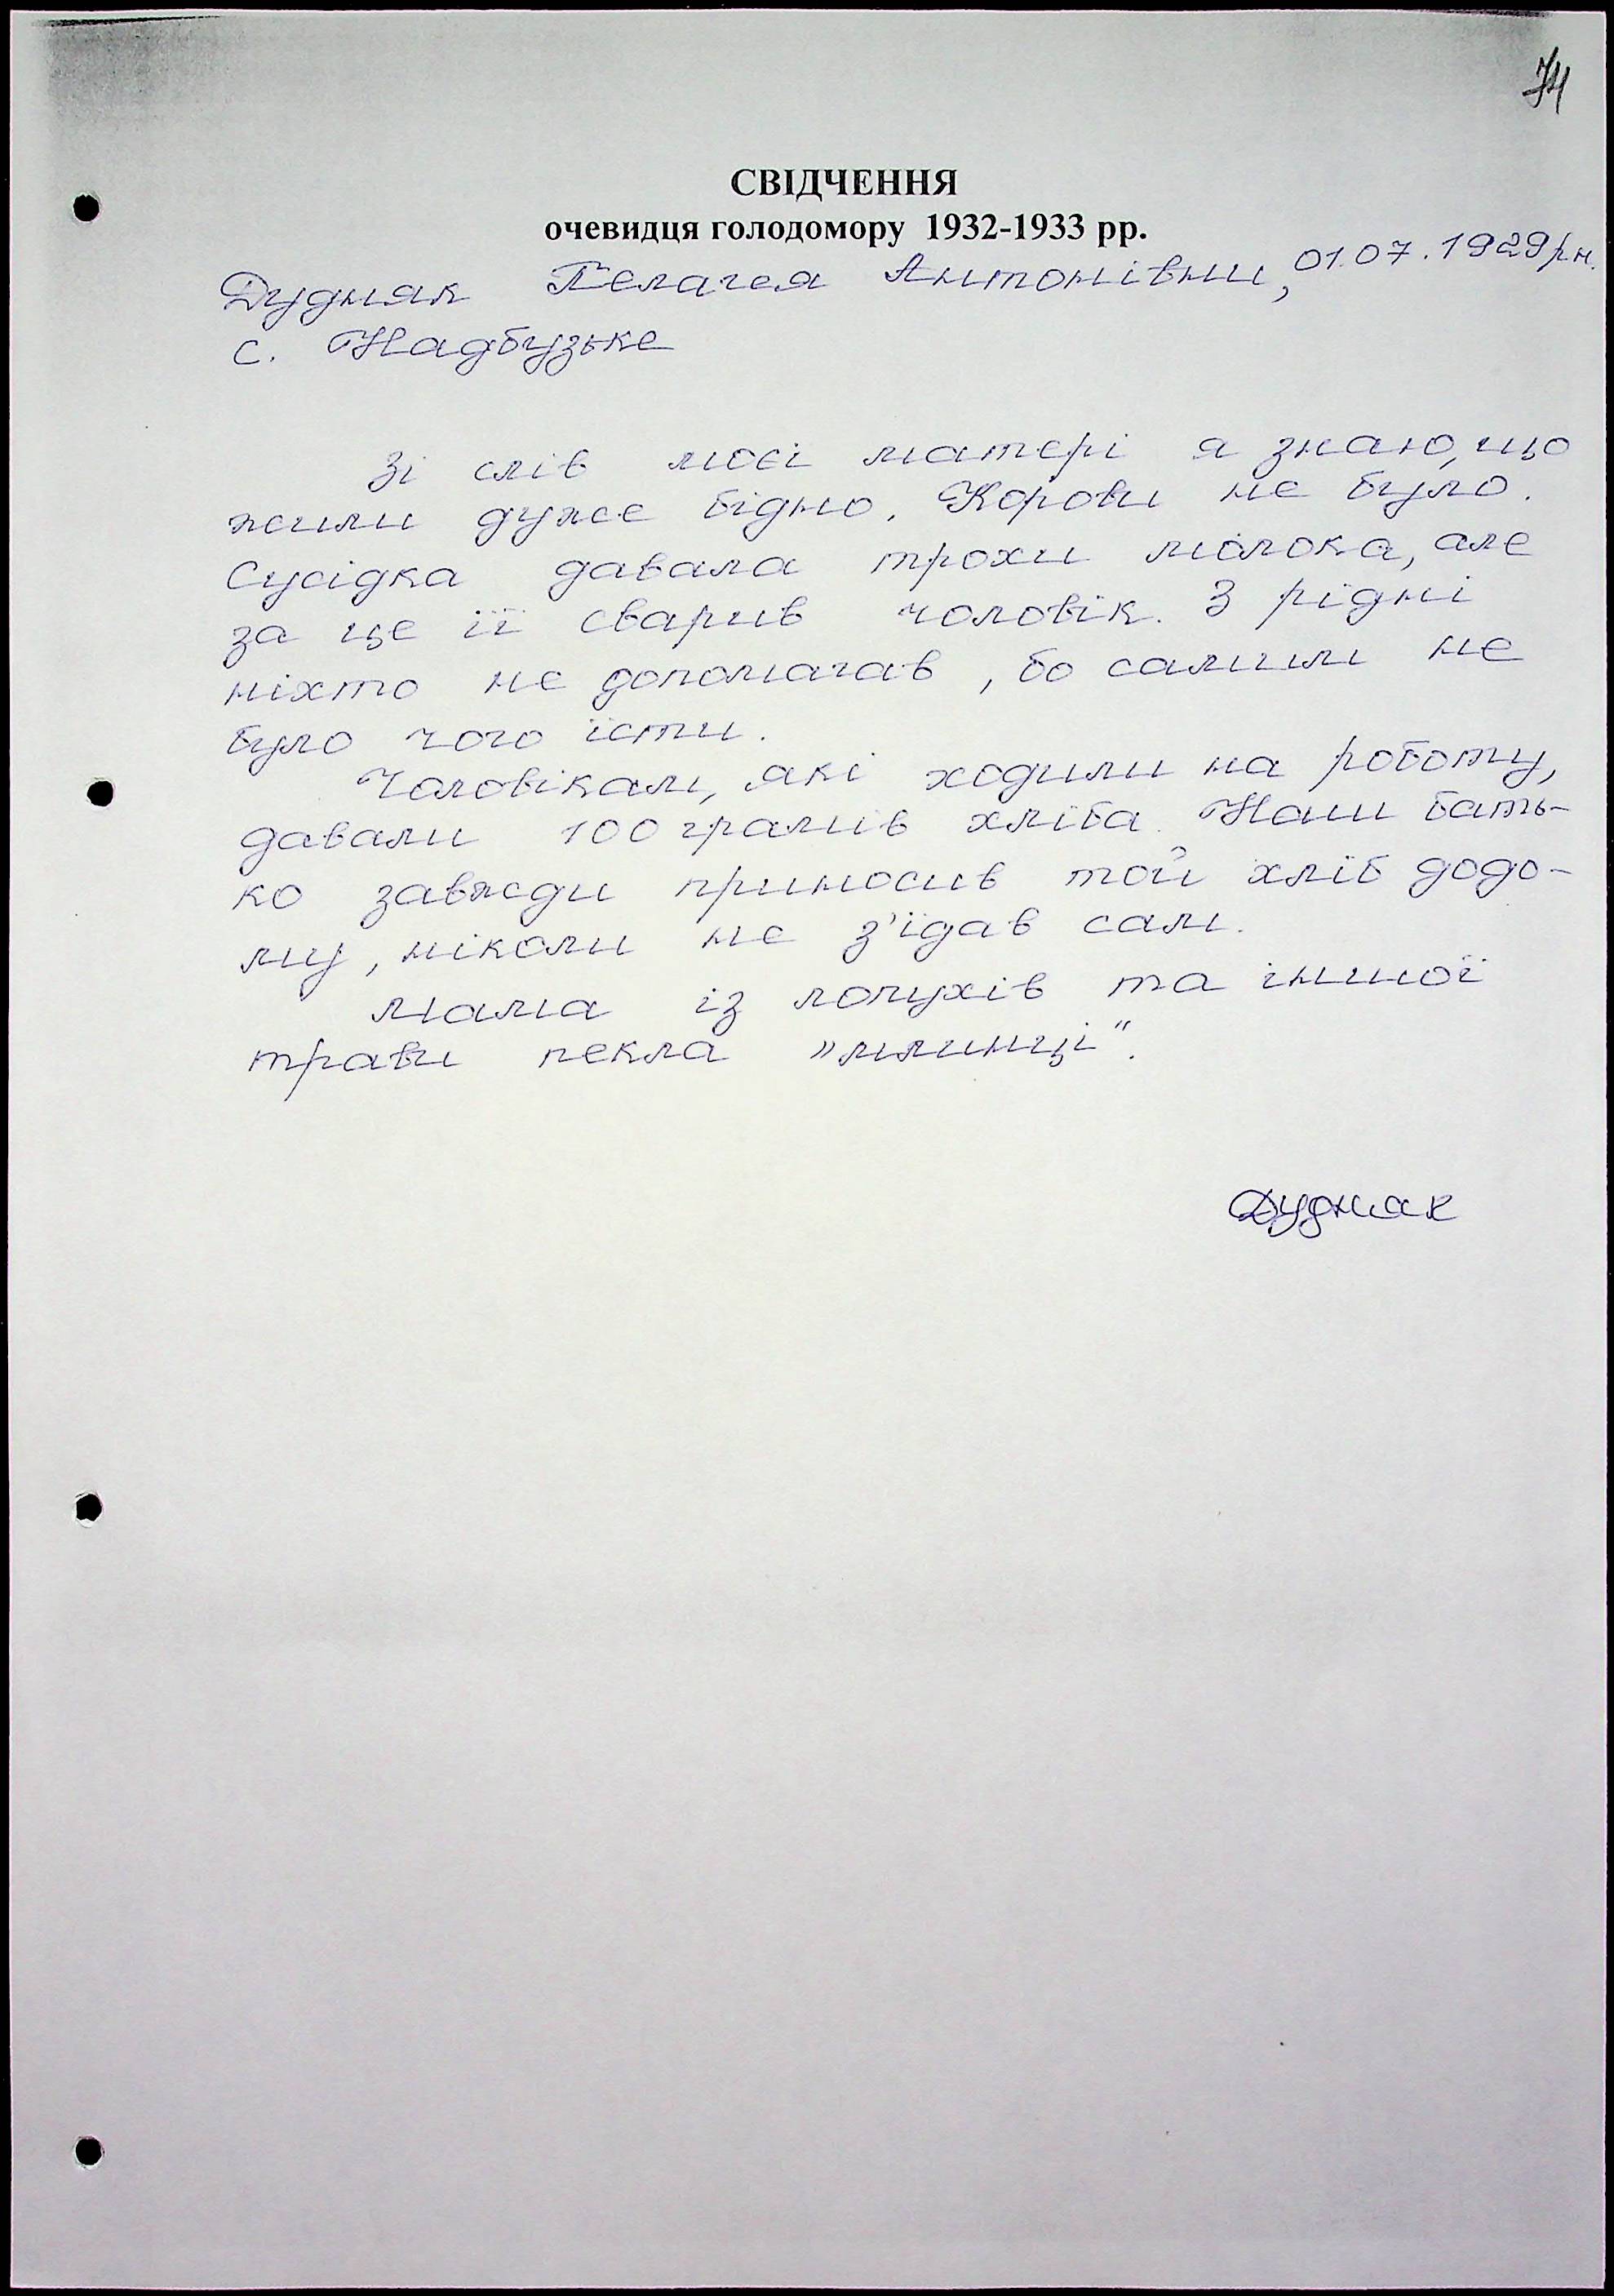 74
СВІДЧЕННЯ
очевидця голодомору 1932-1933 рр.
Дудняк Пелагея Антонівни, 01.07.1929р.н.
с. Надбузьке
Зі слів моєї матері я знаю, що
жили дуже бідно. Корови не було.
Сусідка давала трохи молока, але
за це її сварив чоловік. З рідні
ніхто не допомагав, бо самим не
було чого їсти.
Чоловікам, які ходили на роботу,
давали 100 грамів хліба. Наш бать-
ко завжди приносив той хліб додо-
му, ніколи не з'їдав сам.
Мама із лопухів та іншої
трави пекла "млинці".
Дудняк